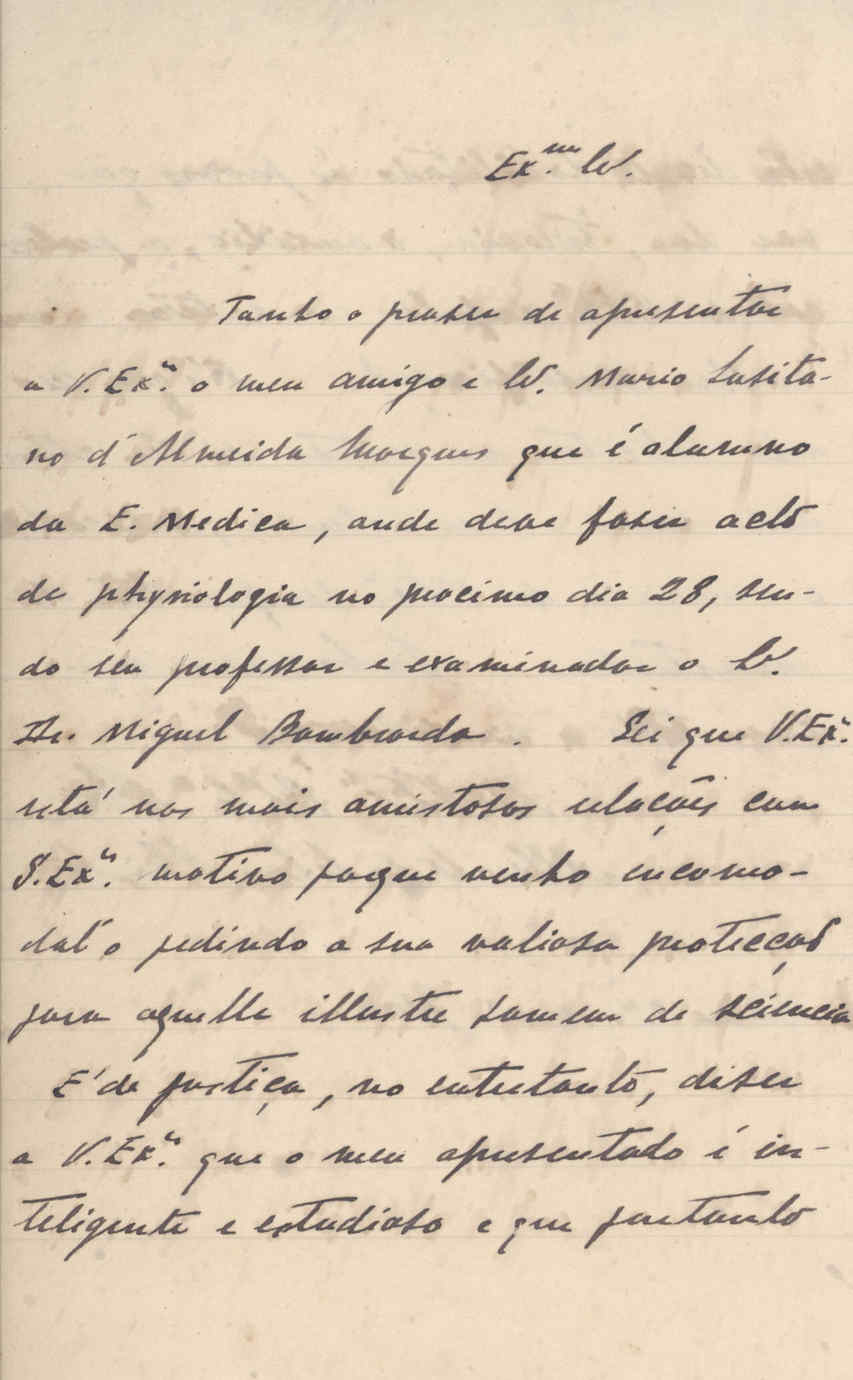 Ex.mo Sr.
Tenho o praser de apresentar
a V. Ex.ª o meu amigo e Sr. Mario Lusita-
no d'Almeida Marques que é alumno
da E. Medica, onde deve faser acto
de physiologia no procimo dia 28, sen-
do seu professor e examinador o Sr.
Dr. Miguel Bombarda. Sei que V. Ex.ª
está nas mais amistosas relações com
S. Ex.ª motivo porque venho encomo-
dal'o pedindo a sua valiosa protecção
para aquelle illustre homem de sciencia
É de justiça, no entretanto, diser
a V. Ex.ª que o meu apresentado é in-
teligente e estudioso e que portanto